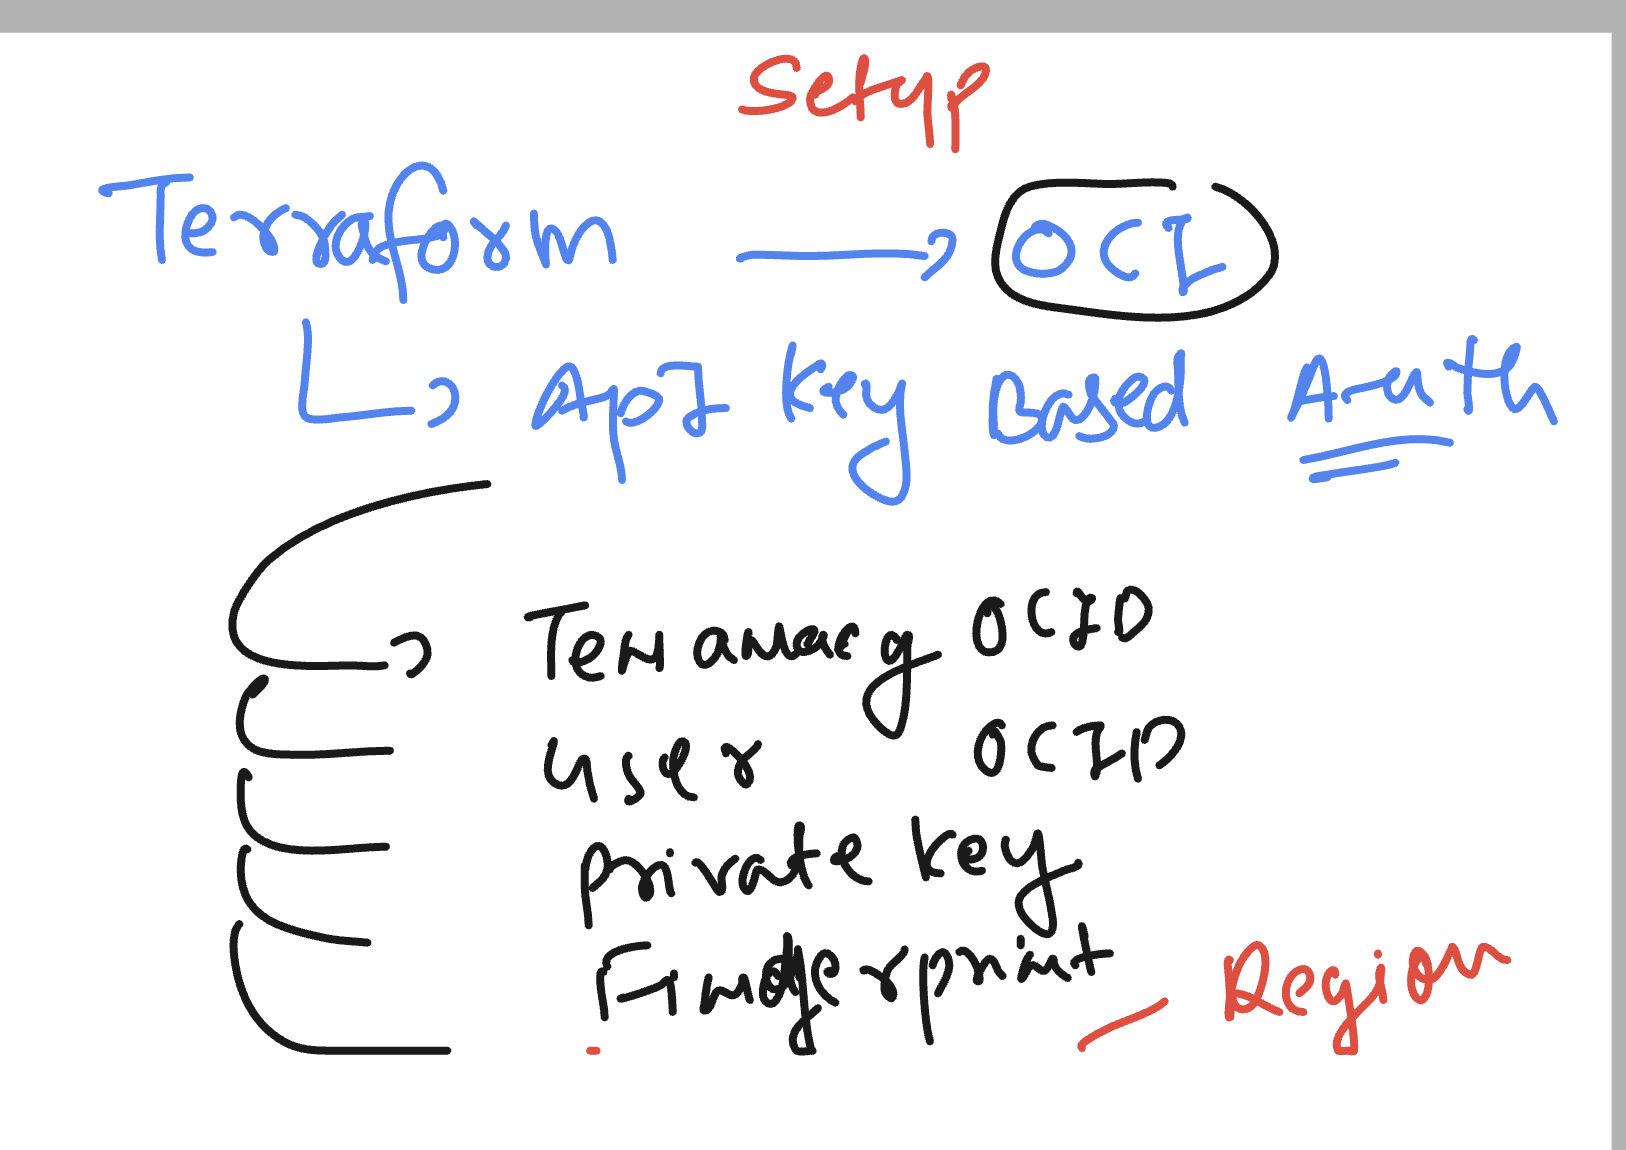 Setup
Terraform → OCI
API Key Based Auth
Tenancy OCID
User OCID
Private Key
Fingerprint - Region